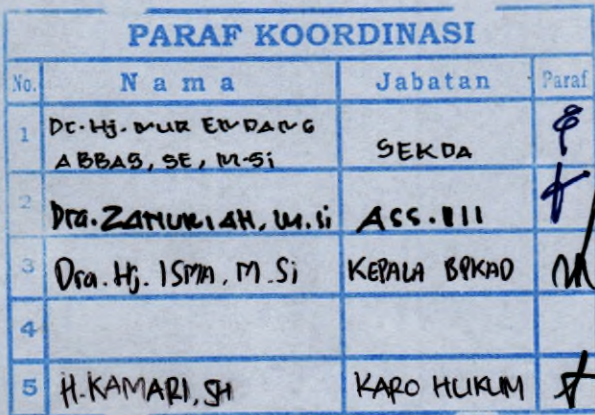 PARAF KOORDINASI
No. Nama Jabatan Paraf
1 Dr. Hj. NUR ENDANG
ABBAS, SE, M.Si SEKDA
2 Dra. ZANURIAH, M.Si ASS. III
3 Dra. Hj. ISMA, M.Si KEPALA BPKAD
4
5 H. KAMARI, SH KARO HUKUM